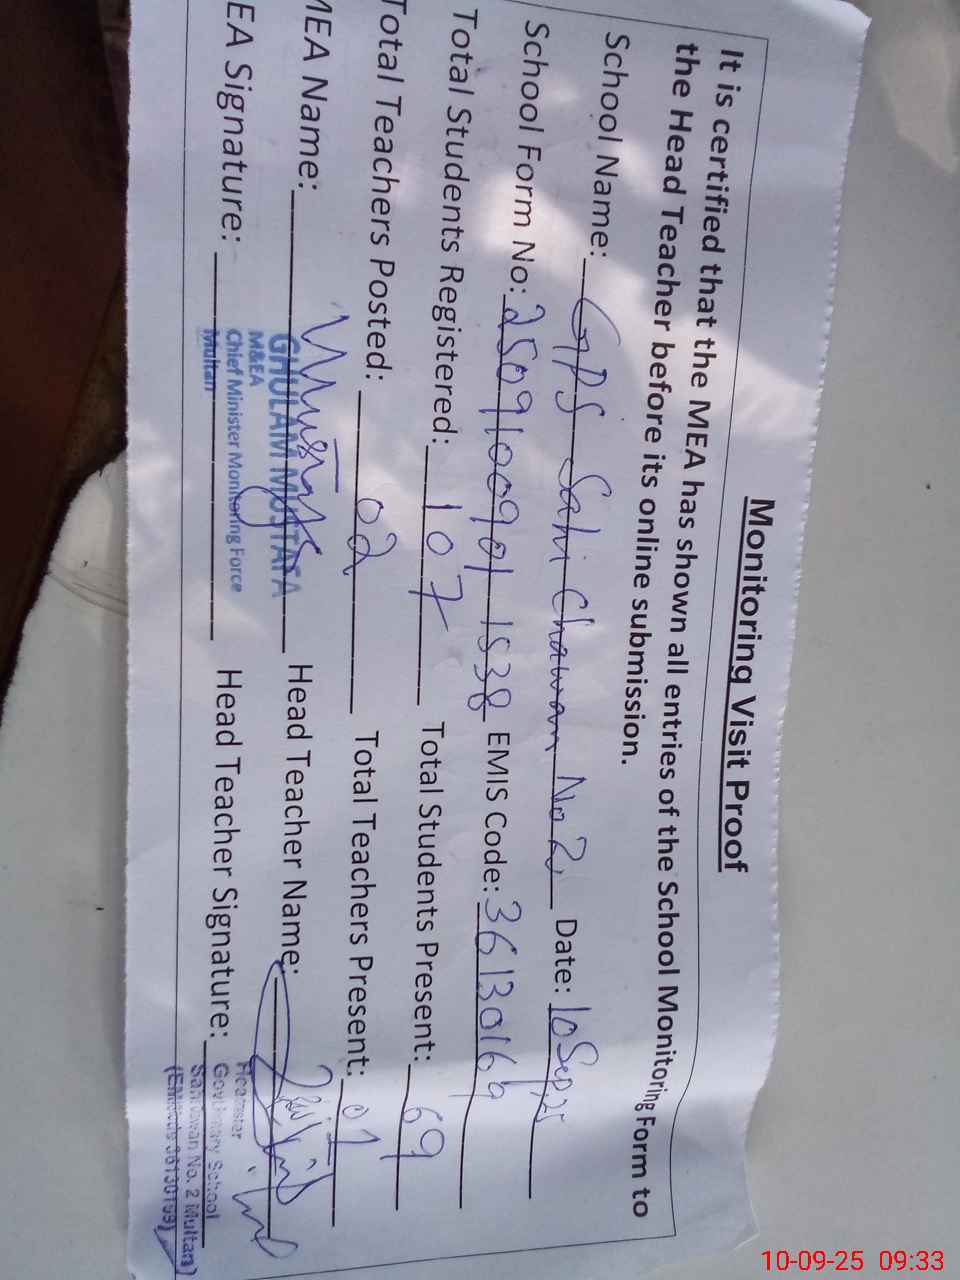 Monitoring Visit Proof
It is certified that the MEA has shown all entries of the School Monitoring Form to
the Head Teacher before its online submission.
School Name: GPS Sahi Chawan No 2, Date: 10 Sep, 25
School Form No: 2509100901 1538 EMIS Code: 36130169
Total Students Registered: 107 Total Students Present: 69
Total Teachers Posted: 02 Total Teachers Present: 01
MEA Name: GHULAM MUSTAFA Head Teacher Name:
M&EA
Chief Minister Monitoring Force
Multan
EA Signature: Head Teacher Signature:
School
No. 2 Multan)
10-09-25 09:33